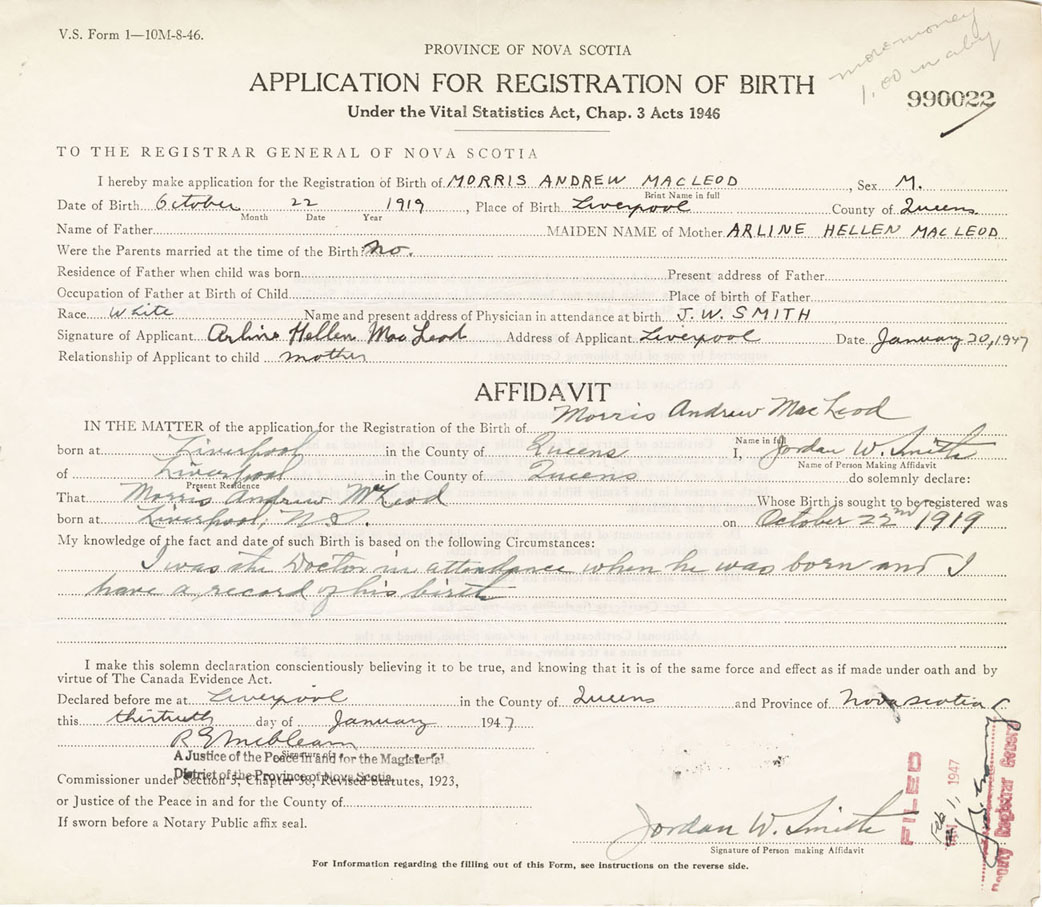 V.S. Form 1—10M-8-46.
PROVINCE OF NOVA SCOTIA
more money
1.00 in
APPLICATION FOR REGISTRATION OF BIRTH
990022
Under the Vital Statistics Act, Chap. 3 Acts 1946
TO THE REGISTRAR GENERAL OF NOVA SCOTIA
I hereby make application for the Registration of Birth of MORRIS ANDREW MACLEOD, Sex M.
Print Name in full
Date of Birth October 22 1919, Place of Birth Liverpool County of Queens
Month Date Year
Name of Father MAIDEN NAME of Mother ARLINE HELLEN MACLEOD
Were the Parents married at the time of the Birth? No.
Residence of Father when child was born Present address of Father
Occupation of Father at Birth of Child Place of birth of Father
Race White Name and present address of Physician in attendance at birth J. W. SMITH
Signature of Applicant Arline Hellen MacLeod Address of Applicant Liverpool Date January 20, 1947
Relationship of Applicant to child mother
AFFIDAVIT
IN THE MATTER of the application for the Registration of the Birth of Morris Andrew MacLeod
Name in full
born at Liverpool in the County of Queens I, Jordan W. Smith
Name of Person Making Affidavit
of Liverpool in the County of Queens do solemnly declare:
Present Residence
That Morris Andrew McLeod Whose Birth is sought to be registered was
born at Liverpool, N.S. on October 22nd 1919
My knowledge of the fact and date of such Birth is based on the following Circumstances:
I was the Doctor in attendance when he was born and I
have a record of his birth
I make this solemn declaration conscientiously believing it to be true, and knowing that it is of the same force and effect as if made under oath and by
virtue of The Canada Evidence Act.
Declared before me at Liverpool in the County of Queens and Province of Nova Scotia
this thirtieth day of January 1947
Signature of
A Justice of the Peace in and for the Magisterial
District of the Province of Nova Scotia
Commissioner under Section 3, Chapter 38, Revised Statutes, 1923,
or Justice of the Peace in and for the County of
If sworn before a Notary Public affix seal.
Jordan W. Smith
Signature of Person making Affidavit
FILED
Feb 1,
JAN 1947
Deputy Registrar General
For Information regarding the filling out of this Form, see instructions on the reverse side.